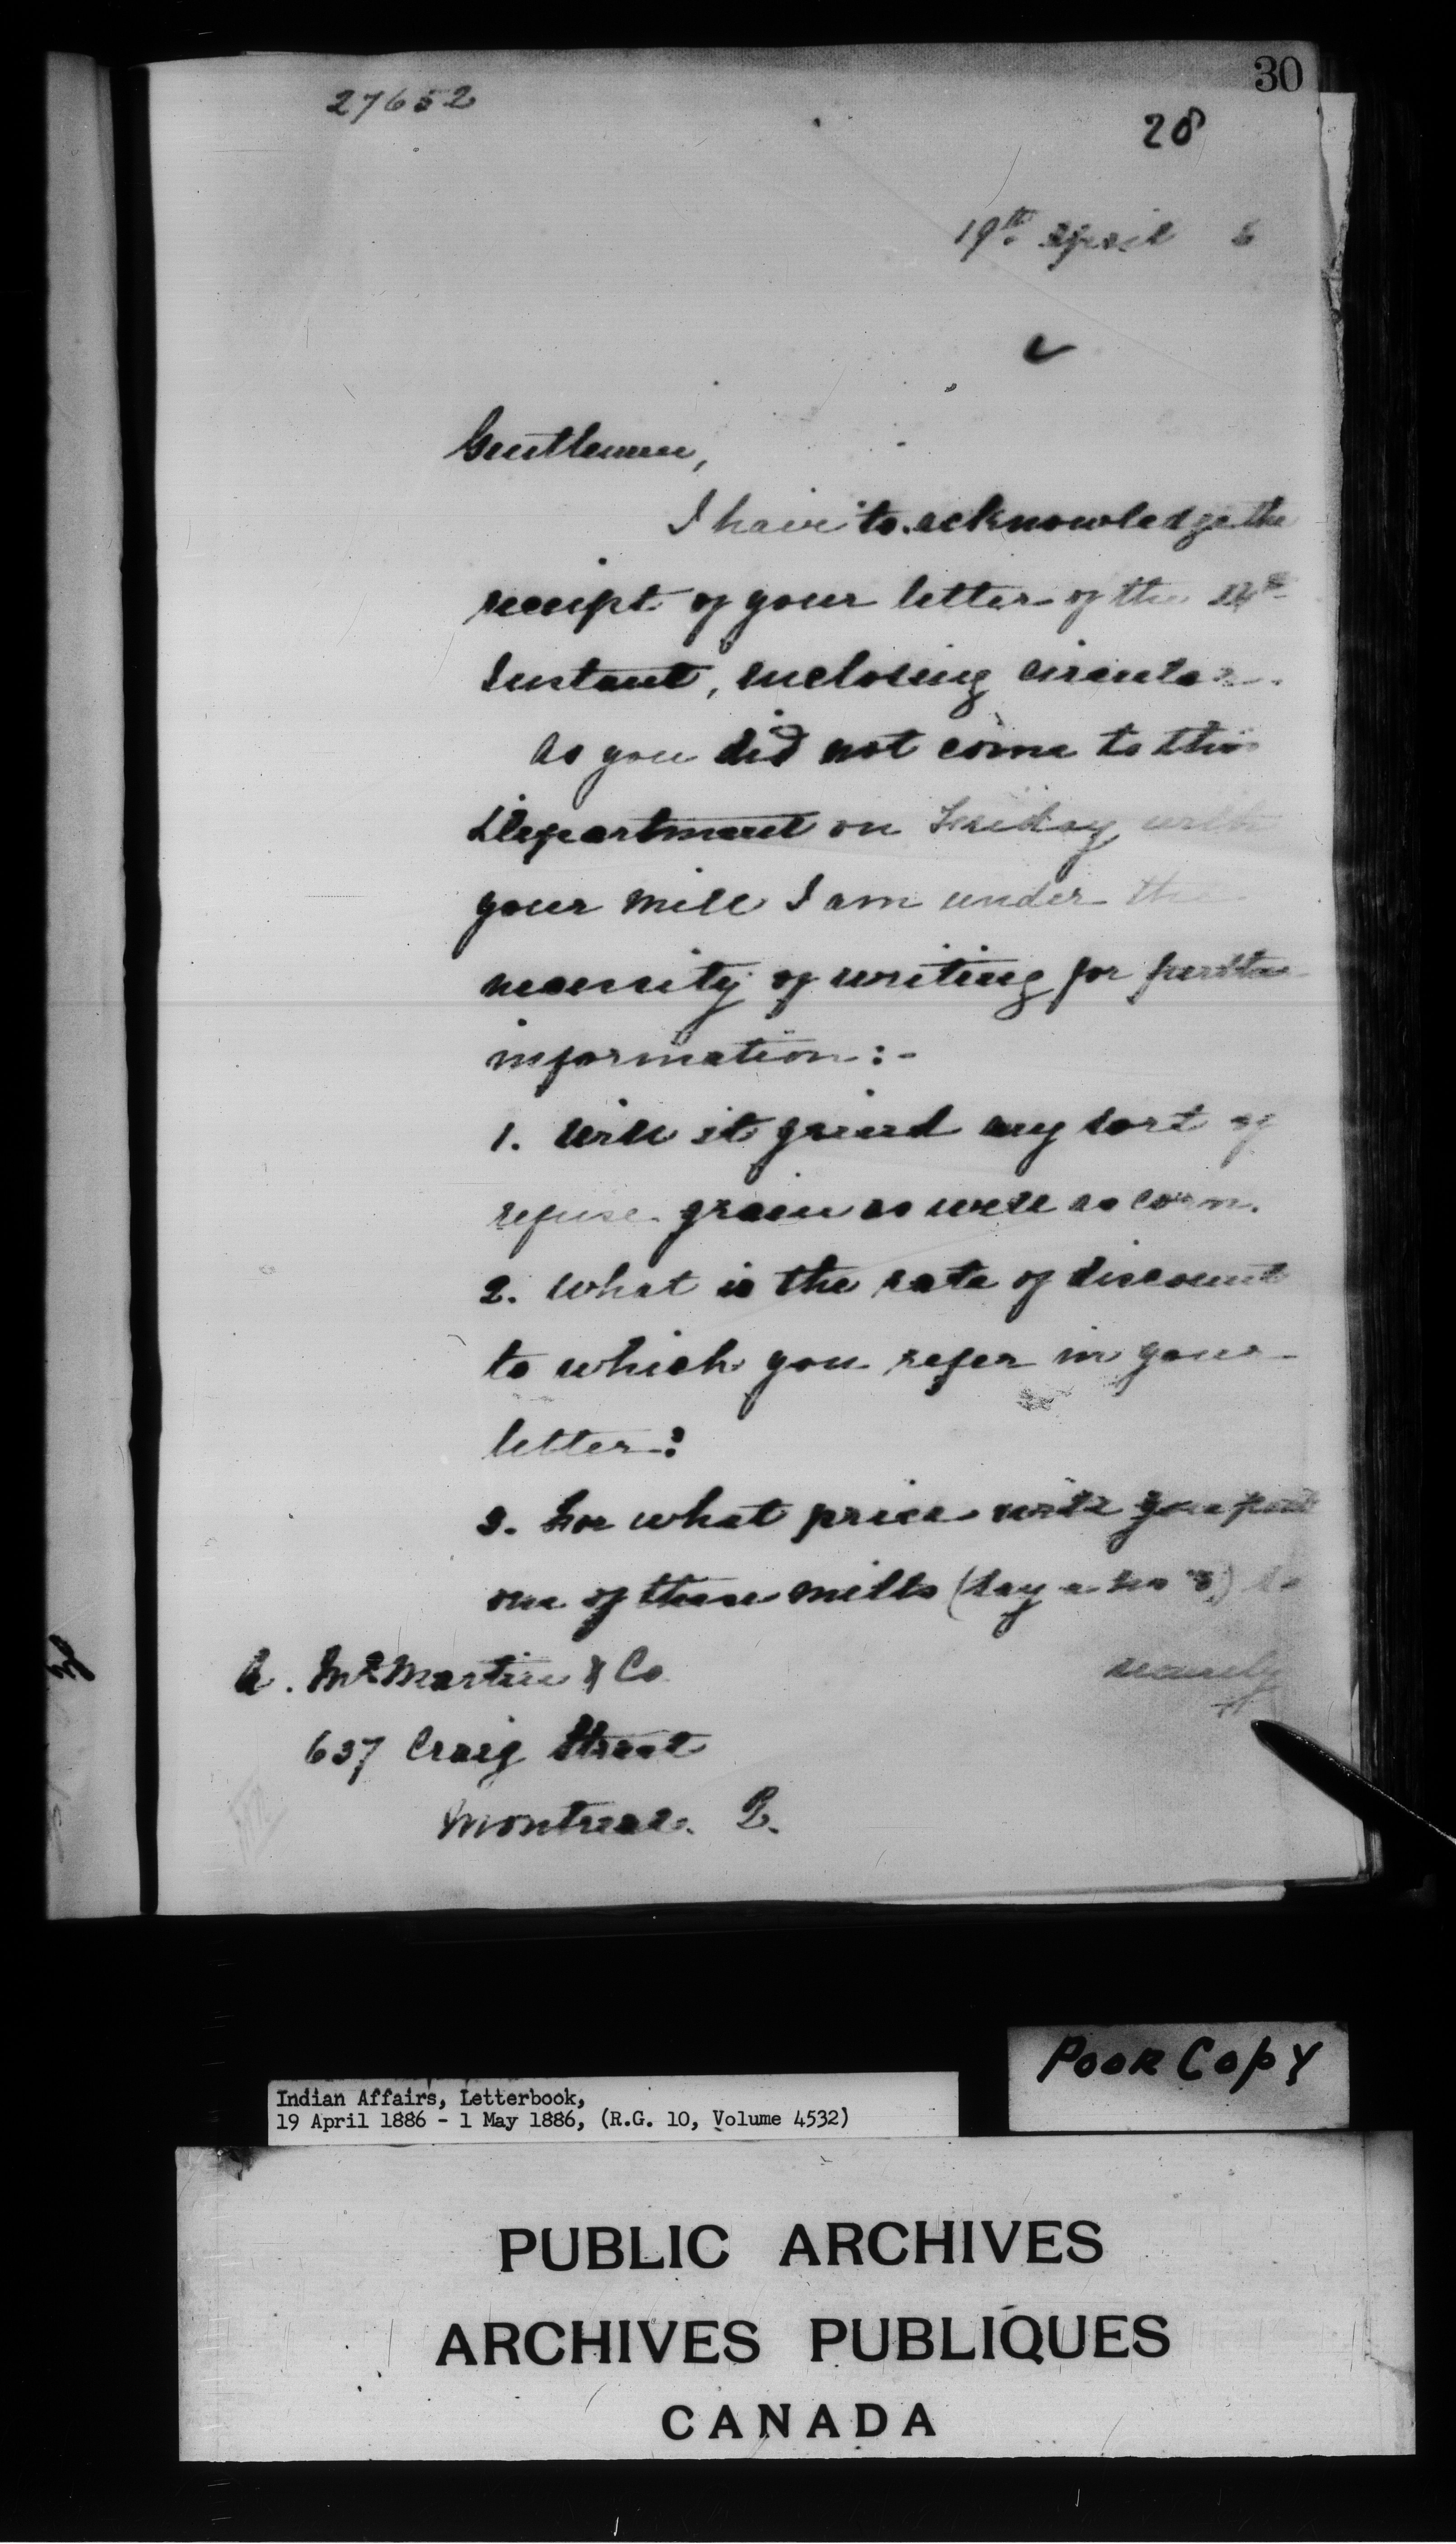 30
27652
28
19th April 6
Gentlemen,
I have to acknowledge the
receipt of your letter of the 14th
Instant, enclosing circular.
As you did not come to this
Department on Friday with
your mill I am under the
necessity of writing for further
information:-
1. Will it grind any sort of
refuse grain as well as corn.
2. What is the rate of discount
to which you refer in your
letter?
3. For what price will you
one of these mills (say a No 3)
securely
A. McMartin & Co
637 Craig Street
Montreal. Q.
Poor Copy
Indian Affairs, Letterbook,
19 April 1886 - 1 May 1886, (R.G. 10, Volume 4532)
PUBLIC ARCHIVES
ARCHIVES PUBLIQUES
CANADA